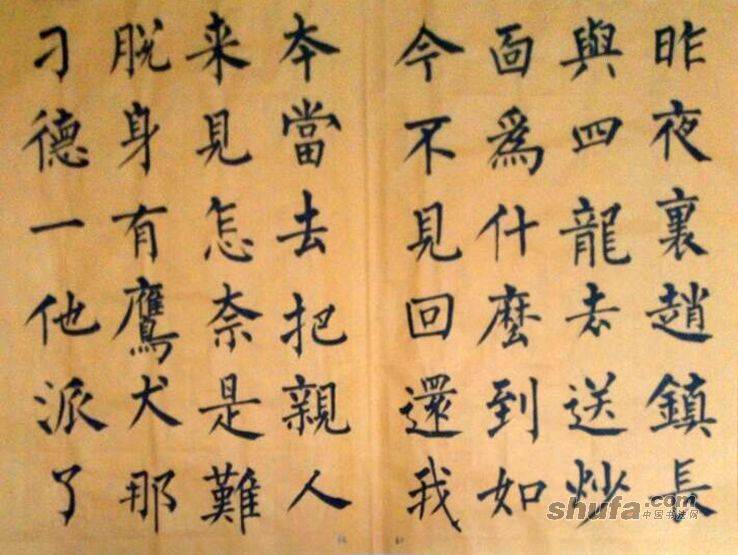 昨夜裏趙鎮長
與四龍去送炒
面爲什麼到如
今不見回還我
本當去把親人
来見怎奈是難
脱身有鷹犬那
刁德一他派了
shufa.com
中国书法网